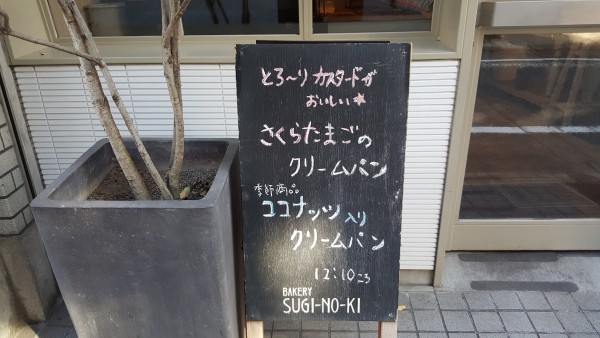 とろ～り カスタードが
おいしい★
さくらたまごの
クリームパン
季節商品
ココナッツ入り
クリームパン
12:10ころ
BAKERY
SUGI-NO-KI